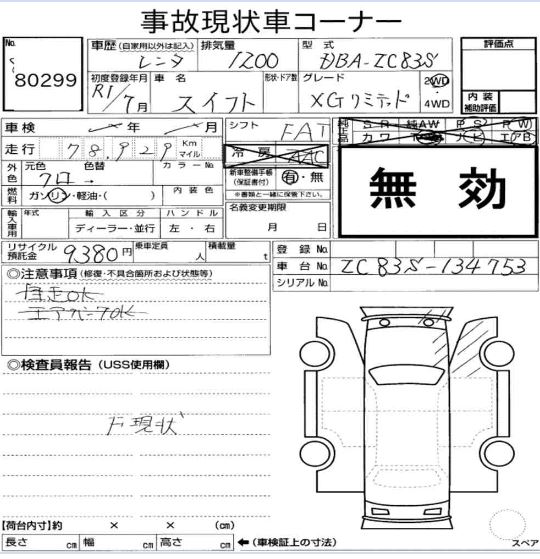 事故現状車コーナー
No.
80299
車歴 (自家用以外は記入) レンタ
排気量 1200
型式 DBA-ZC83S
評価点
初度登録年月 R1/7月
車名 スイフト
形状・ドア数
グレード XGリミテッド
2WD・4WD
内装補助評価
車検 年 月
シフト FAT
純正品 SR 純AW PS PW
カワ エアB
走行 78,929 Km マイル
冷房 AAC
外色 元色 クロ 色替 カラーNo.
新車整備手帳 (保証書付) 有・無
※書類と一緒に保管下さい。
無効
燃料 ガソリン・軽油・( )
内装色
名義変更期限 月 日
輸入車用 年式 輸入区分 ディーラー・並行 ハンドル 左・右
リサイクル預託金 9380円
乗車定員 人
積載量 t
登録No.
車台No. ZC83S-134753
シリアルNo.
◎注意事項 (修復・不具合箇所および状態等)
自走OK
エアバックOK
◎検査員報告 (USS使用欄)
下現状
【荷台内寸】約 × × (cm)
長さ cm 幅 cm 高さ cm
←(車検証上の寸法)
スペア